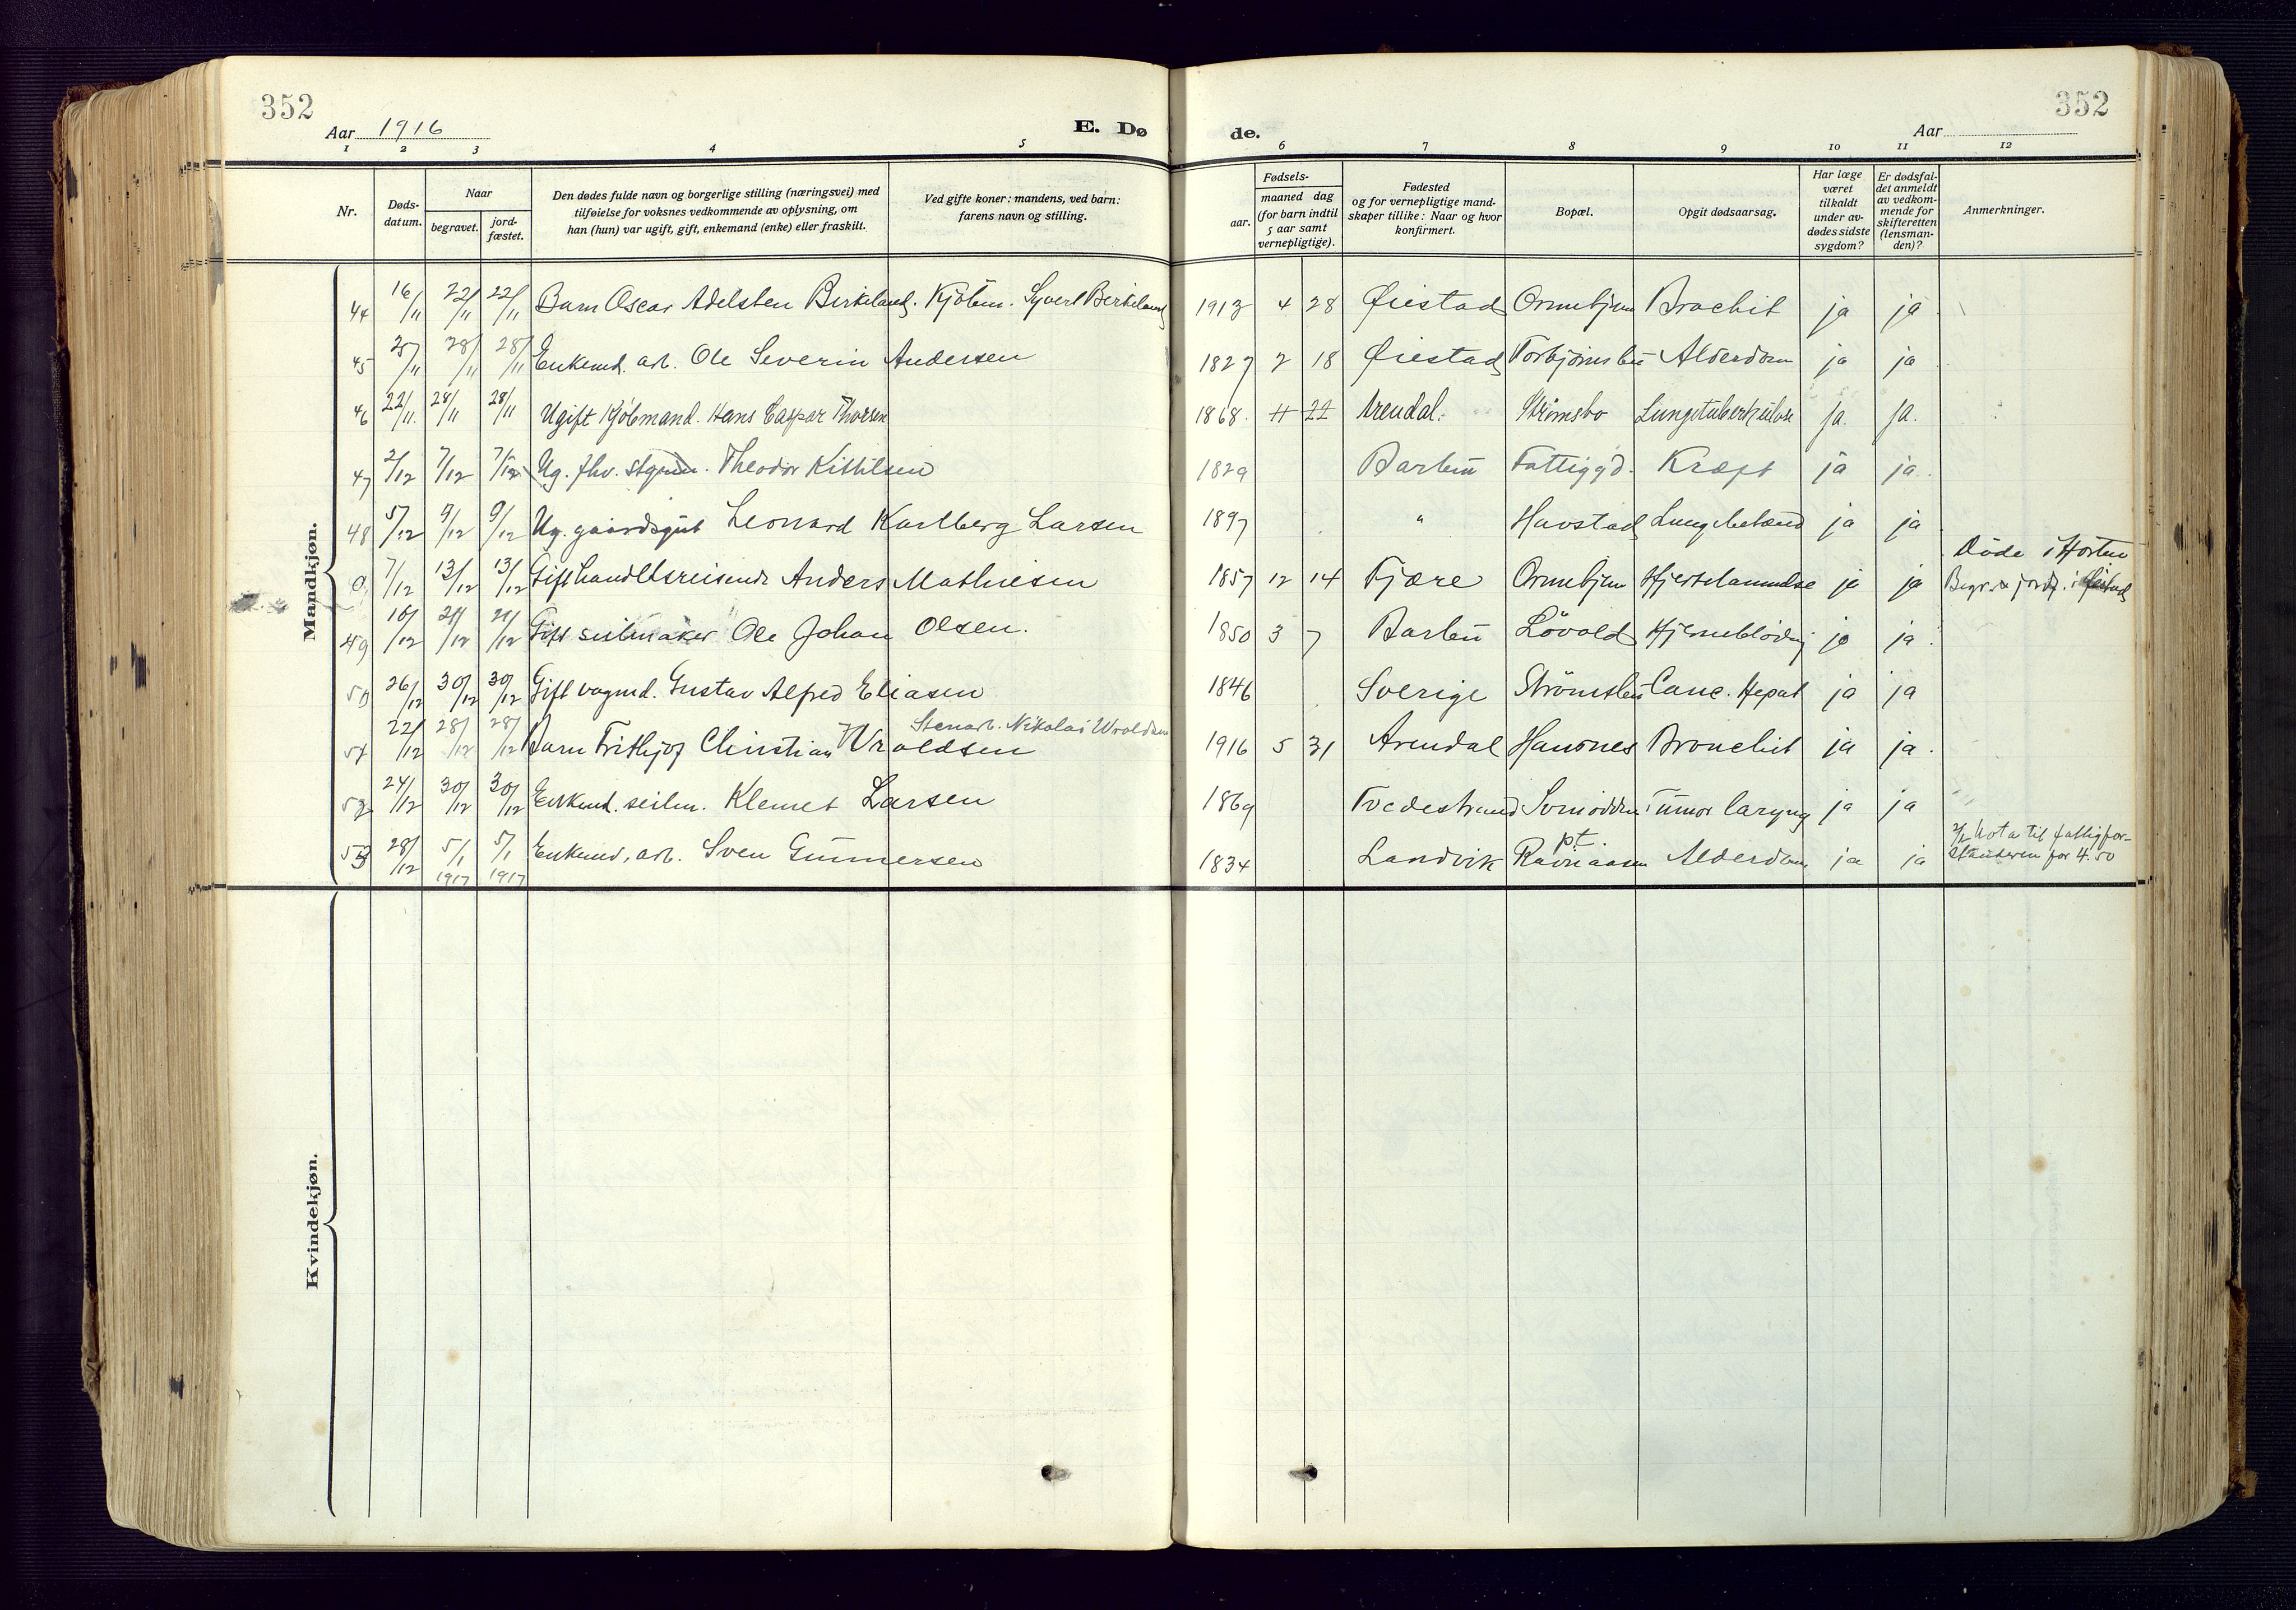 352
352
Aar 1916
E. Dø
de.
Aar
1 2 3 4 5 6 7 8 9 10 11 12
Nr.
Døds-
datum.
Naar
begravet.
jord-
fæstet.
Den dødes fulde navn og borgerlige stilling (næringsvei) med
tilføielse for voksnes vedkommende av oplysning, om
han (hun) var ugift, gift, enkemand (enke) eller fraskilt.
Ved gifte koner: mandens, ved barn:
farens navn og stilling.
Fødsels-
aar.
maaned dag
(for barn indtil
5 aar samt
vernepligtige).
Fødested
og for vernepligtige mand-
skaper tillike: Naar og hvor
konfirmert.
Bopæl.
Opgit dødsaarsag.
Har læge
været
tilkaldt
under av-
dødes sidste
sygdom?
Er dødsfal-
det anmeldt
av vedkom-
mende for
skifteretten
(lensman-
den)?
Anmerkninger.
Mandkjøn.
44 16/11 22/11 22/11 Barn Oscar Adelsten Birkeland. Kjöbm. Syvert Birkeland 1913 4 28 Øiestad Ormebjern Brochit ja ja
45 28/11 28/11 Enkemd. arb. Ole Severin Andersen 1827 2 18 Øiestad Torbjörnsbu Alderdom ja ja
46 22/11 28/11 28/11 Ugift Kjöbmand. Hans Caspar Thorsen 1868. 11 22 Arendal. Strömsbo Lungetuberkulose ja. ja.
47 2/12 7/12 7/12 Ug. fhv. Theodor Kittilsen 1829 Barbu Fattiggd. Kræft ja ja.
48 5/12 9/12 9/12 Ug. gaardsgut Leonard Karlberg Larsen 1897 " Havstad Lungebetænd ja ja
0, 7/12 13/12 13/12 Gift handelsreisende Anders Mathiesen 1857 12 14 Fjære Ormebjern Hjertelammelse ja ja Döde i Horten
Begr. & jordf. i Øiestad
49 16/12 21/12 21/12 Gift seilmaker Ole Johan Olsen. 1850 3 7 Barbu Lövold Hjerneblödnj ja ja
50 26/12 30/12 30/12 Gift vognmd. Gustav Alfred Eliasen 1846 Sverige Strömsbu Canc. Hepat ja ja
51 22/12 28/12 28/12 Barn Frithjof Christian Wroldsen Stenarb. Nikolai Wroldsen 1916 5 31 Arendal Hansnes Bronchit ja ja.
52 24/12 30/12 30/12 Enkemd. seilm. Klemet Larsen 1869 Tvedestrand Tumor laryng ja ja
53 28/12 5/1 1917 5/1 1917 Enkemd. arb. Sven Gunnersen 1834 Landvik pt. Ravnaasen Alderdom ja ja 2/1 Nota til fattigfor-
standeren for 4.50
Kvindekjøn.